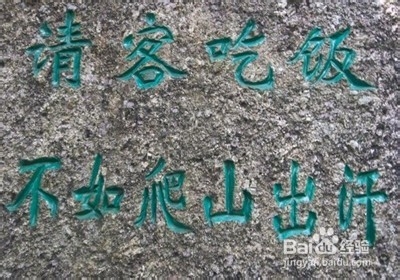 请客吃饭
不如爬山出汗
Baidu经验
jingyan.baidu.com